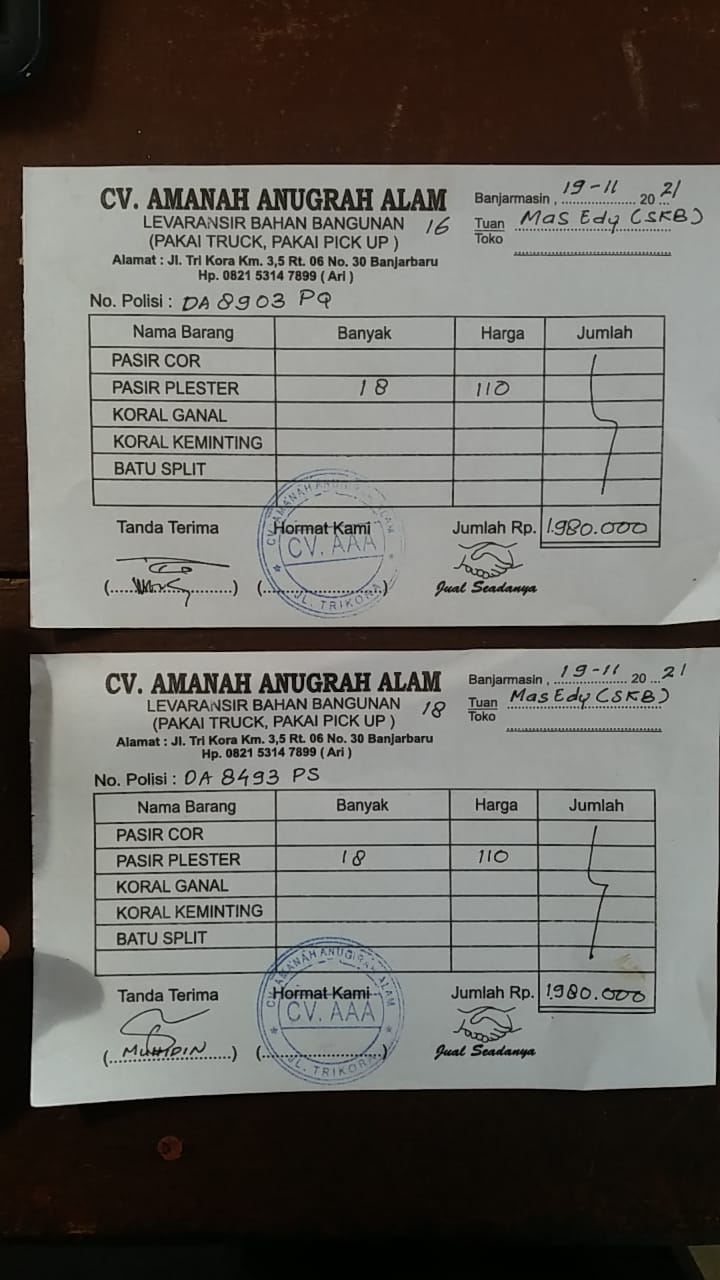 CV. AMANAH ANUGRAH ALAM
LEVARANSIR BAHAN BANGUNAN 16
(PAKAI TRUCK, PAKAI PICK UP )
Alamat : Jl. Tri Kora Km. 3,5 Rt. 06 No. 30 Banjarbaru
Hp. 0821 5314 7899 ( Ari )
Banjarmasin , 19-11 20 21
Tuan Mas Edy (SKB)
Toko
No. Polisi : DA 8903 PQ
Nama Barang Banyak Harga Jumlah
PASIR COR
PASIR PLESTER 18 110
KORAL GANAL
KORAL KEMINTING
BATU SPLIT
Tanda Terima Hormat Kami Jumlah Rp. 1.980.000
CV. AMANAH ANUGRAH ALAM
CV. AAA
JL. TRIKORA
Jual Seadanya
CV. AMANAH ANUGRAH ALAM
LEVARANSIR BAHAN BANGUNAN 18
(PAKAI TRUCK, PAKAI PICK UP )
Alamat : Jl. Tri Kora Km. 3,5 Rt. 06 No. 30 Banjarbaru
Hp. 0821 5314 7899 ( Ari )
Banjarmasin , 19-11 20 21
Tuan Mas Edy (SKB)
Toko
No. Polisi : DA 8493 PS
Nama Barang Banyak Harga Jumlah
PASIR COR
PASIR PLESTER 18 110
KORAL GANAL
KORAL KEMINTING
BATU SPLIT
Tanda Terima Hormat Kami Jumlah Rp. 1.980.000
CV. AMANAH ANUGRAH ALAM
CV. AAA
JL. TRIKORA
(MUHIDIN)
Jual Seadanya